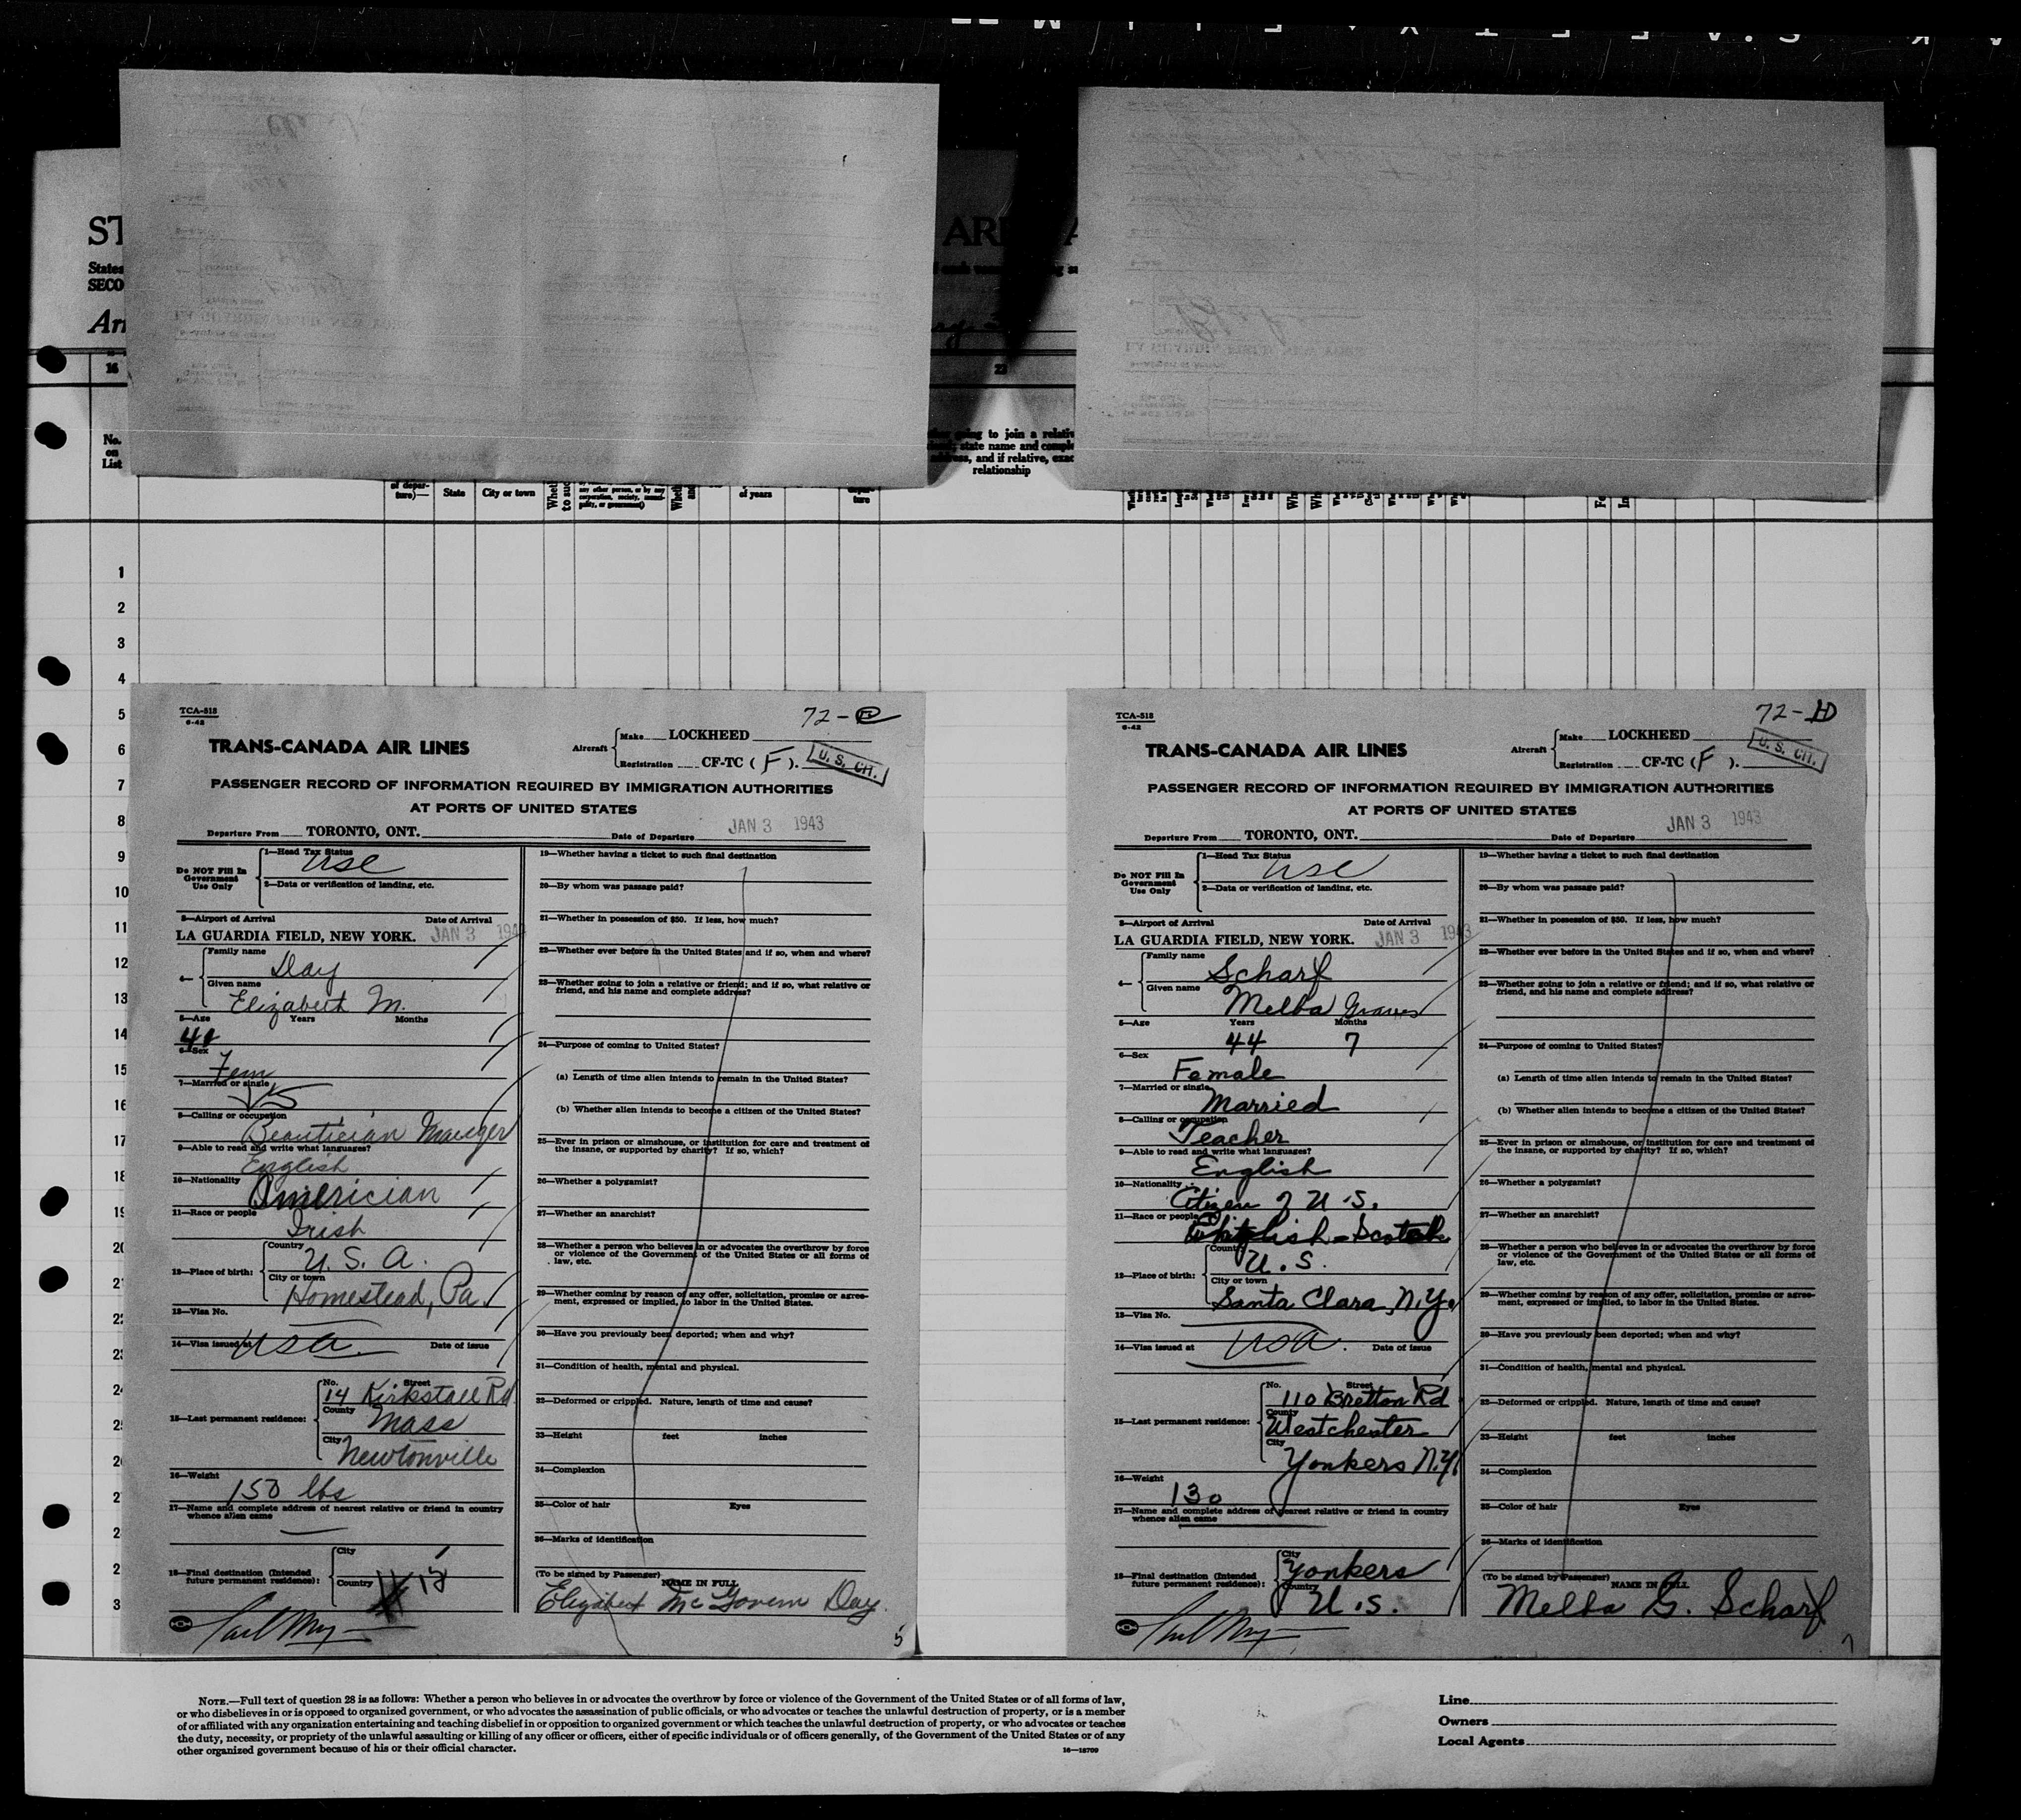 ST
States
SECO
ARRI
Arr
16
23
No.
on
List
going to join a relativ
state name and comple
address, and if relative, exac
relationship
of depar-
ture)—
State
City or town
of years
depar-
ture
1
2
3
4
5
6
7
8
9
10
11
12
13
14
15
16
17
18
19
20
21
22
23
24
25
26
TCA-518
6-42
72-
TRANS-CANADA AIR LINES
Aircraft
Make LOCKHEED
Registration CF-TC (F).
U. S. CIT.
PASSENGER RECORD OF INFORMATION REQUIRED BY IMMIGRATION AUTHORITIES
AT PORTS OF UNITED STATES
Departure From TORONTO, ONT. Date of Departure JAN 3 1943
Do NOT Fill In
Government
Use Only
1—Head Tax Status
USC
2—Data or verification of landing, etc.
3—Airport of Arrival Date of Arrival
LA GUARDIA FIELD, NEW YORK. JAN 3 194
4— Family name
Day
Given name
Elizabeth M.
5—Age Years Months
6—Sex
Fem
7—Married or single
8—Calling or occupation
Beautician Maneger
9—Able to read and write what languages?
English
10—Nationality
Americian
11—Race or people
Irish
12—Place of birth:
Country
U. S. A.
City or town
Homestead, Pa.
13—Visa No.
14—Visa issued at USA. Date of issue
15—Last permanent residence:
No. Street
14 Kirkstall Rd
County
Mass
City
Newtonville
16—Weight
150 lbs
17—Name and complete address of nearest relative or friend in country
whence alien came
18—Final destination (Intended
future permanent residence):
City
Country
19—Whether having a ticket to such final destination
20—By whom was passage paid?
21—Whether in possession of $50. If less, how much?
22—Whether ever before in the United States and if so, when and where?
23—Whether going to join a relative or friend; and if so, what relative or
friend, and his name and complete address?
24—Purpose of coming to United States?
(a) Length of time alien intends to remain in the United States?
(b) Whether alien intends to become a citizen of the United States?
25—Ever in prison or almshouse, or institution for care and treatment of
the insane, or supported by charity? If so, which?
26—Whether a polygamist?
27—Whether an anarchist?
28—Whether a person who believes in or advocates the overthrow by force
or violence of the Government of the United States or all forms of
law, etc.
29—Whether coming by reason of any offer, solicitation, promise or agree-
ment, expressed or implied, to labor in the United States.
30—Have you previously been deported; when and why?
31—Condition of health, mental and physical.
32—Deformed or crippled. Nature, length of time and cause?
33—Height feet inches
34—Complexion
35—Color of hair Eyes
36—Marks of identification
(To be signed by Passenger) NAME IN FULL
Elizabeth McGovern Day
5
TCA-518
6-42
72-D
TRANS-CANADA AIR LINES
Aircraft
Make LOCKHEED
Registration CF-TC (F).
U. S. CIT.
PASSENGER RECORD OF INFORMATION REQUIRED BY IMMIGRATION AUTHORITIES
AT PORTS OF UNITED STATES
Departure From TORONTO, ONT. Date of Departure JAN 3 1943
Do NOT Fill In
Government
Use Only
1—Head Tax Status
USC
2—Data or verification of landing, etc.
3—Airport of Arrival Date of Arrival
LA GUARDIA FIELD, NEW YORK. JAN 3 1943
4— Family name
Scharf
Given name
Melba Graves
5—Age Years Months
44 7
6—Sex
Female
7—Married or single
Married
8—Calling or occupation
Teacher
9—Able to read and write what languages?
English
10—Nationality
Citizen of U.S.
11—Race or people
Scotch
12—Place of birth:
Country
U.S.
City or town
Santa Clara, N.Y.
13—Visa No.
14—Visa issued at USA. Date of issue
15—Last permanent residence:
No. Street
110 Bretton Rd
County
Westchester
City
Yonkers N.Y.
16—Weight
130
17—Name and complete address of nearest relative or friend in country
whence alien came
18—Final destination (Intended
future permanent residence):
City
Yonkers
Country
U.S.
19—Whether having a ticket to such final destination
20—By whom was passage paid?
21—Whether in possession of $50. If less, how much?
22—Whether ever before in the United States and if so, when and where?
23—Whether going to join a relative or friend; and if so, what relative or
friend, and his name and complete address?
24—Purpose of coming to United States?
(a) Length of time alien intends to remain in the United States?
(b) Whether alien intends to become a citizen of the United States?
25—Ever in prison or almshouse, or institution for care and treatment of
the insane, or supported by charity? If so, which?
26—Whether a polygamist?
27—Whether an anarchist?
28—Whether a person who believes in or advocates the overthrow by force
or violence of the Government of the United States or all forms of
law, etc.
29—Whether coming by reason of any offer, solicitation, promise or agree-
ment, expressed or implied, to labor in the United States.
30—Have you previously been deported; when and why?
31—Condition of health, mental and physical.
32—Deformed or crippled. Nature, length of time and cause?
33—Height feet inches
34—Complexion
35—Color of hair Eyes
36—Marks of identification
(To be signed by Passenger) NAME IN FULL
Melba G. Scharf
NOTE.—Full text of question 28 is as follows: Whether a person who believes in or advocates the overthrow by force or violence of the Government of the United States or of all forms of law,
or who disbelieves in or is opposed to organized government, or who advocates the assassination of public officials, or who advocates or teaches the unlawful destruction of property, or is a member
of or affiliated with any organization entertaining and teaching disbelief in or opposition to organized government or which teaches the unlawful destruction of property, or who advocates or teaches
the duty, necessity, or propriety of the unlawful assaulting or killing of any officer or officers, either of specific individuals or of officers generally, of the Government of the United States or of any
other organized government because of his or their official character.
16—18709
Line
Owners
Local Agents